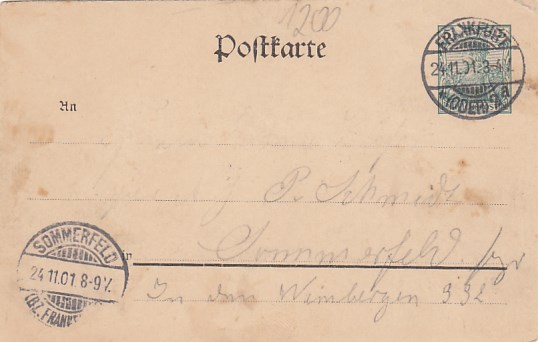 1200
Postkarte
FRANKFURT
24.11.01.3-4
(ODER) 2a
An
P. Schmidt
Sommerfeld
in
In den Weinbergen 332
SOMMERFELD
24 11.01 8-9V.
(BZ. FRANKF